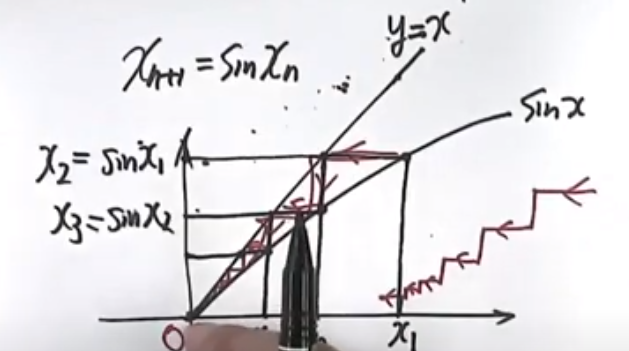 y=x
x_{n+1} = sin x_n
sin x
x_2 = sin x_1
x_3 = sin x_2
O
x_1